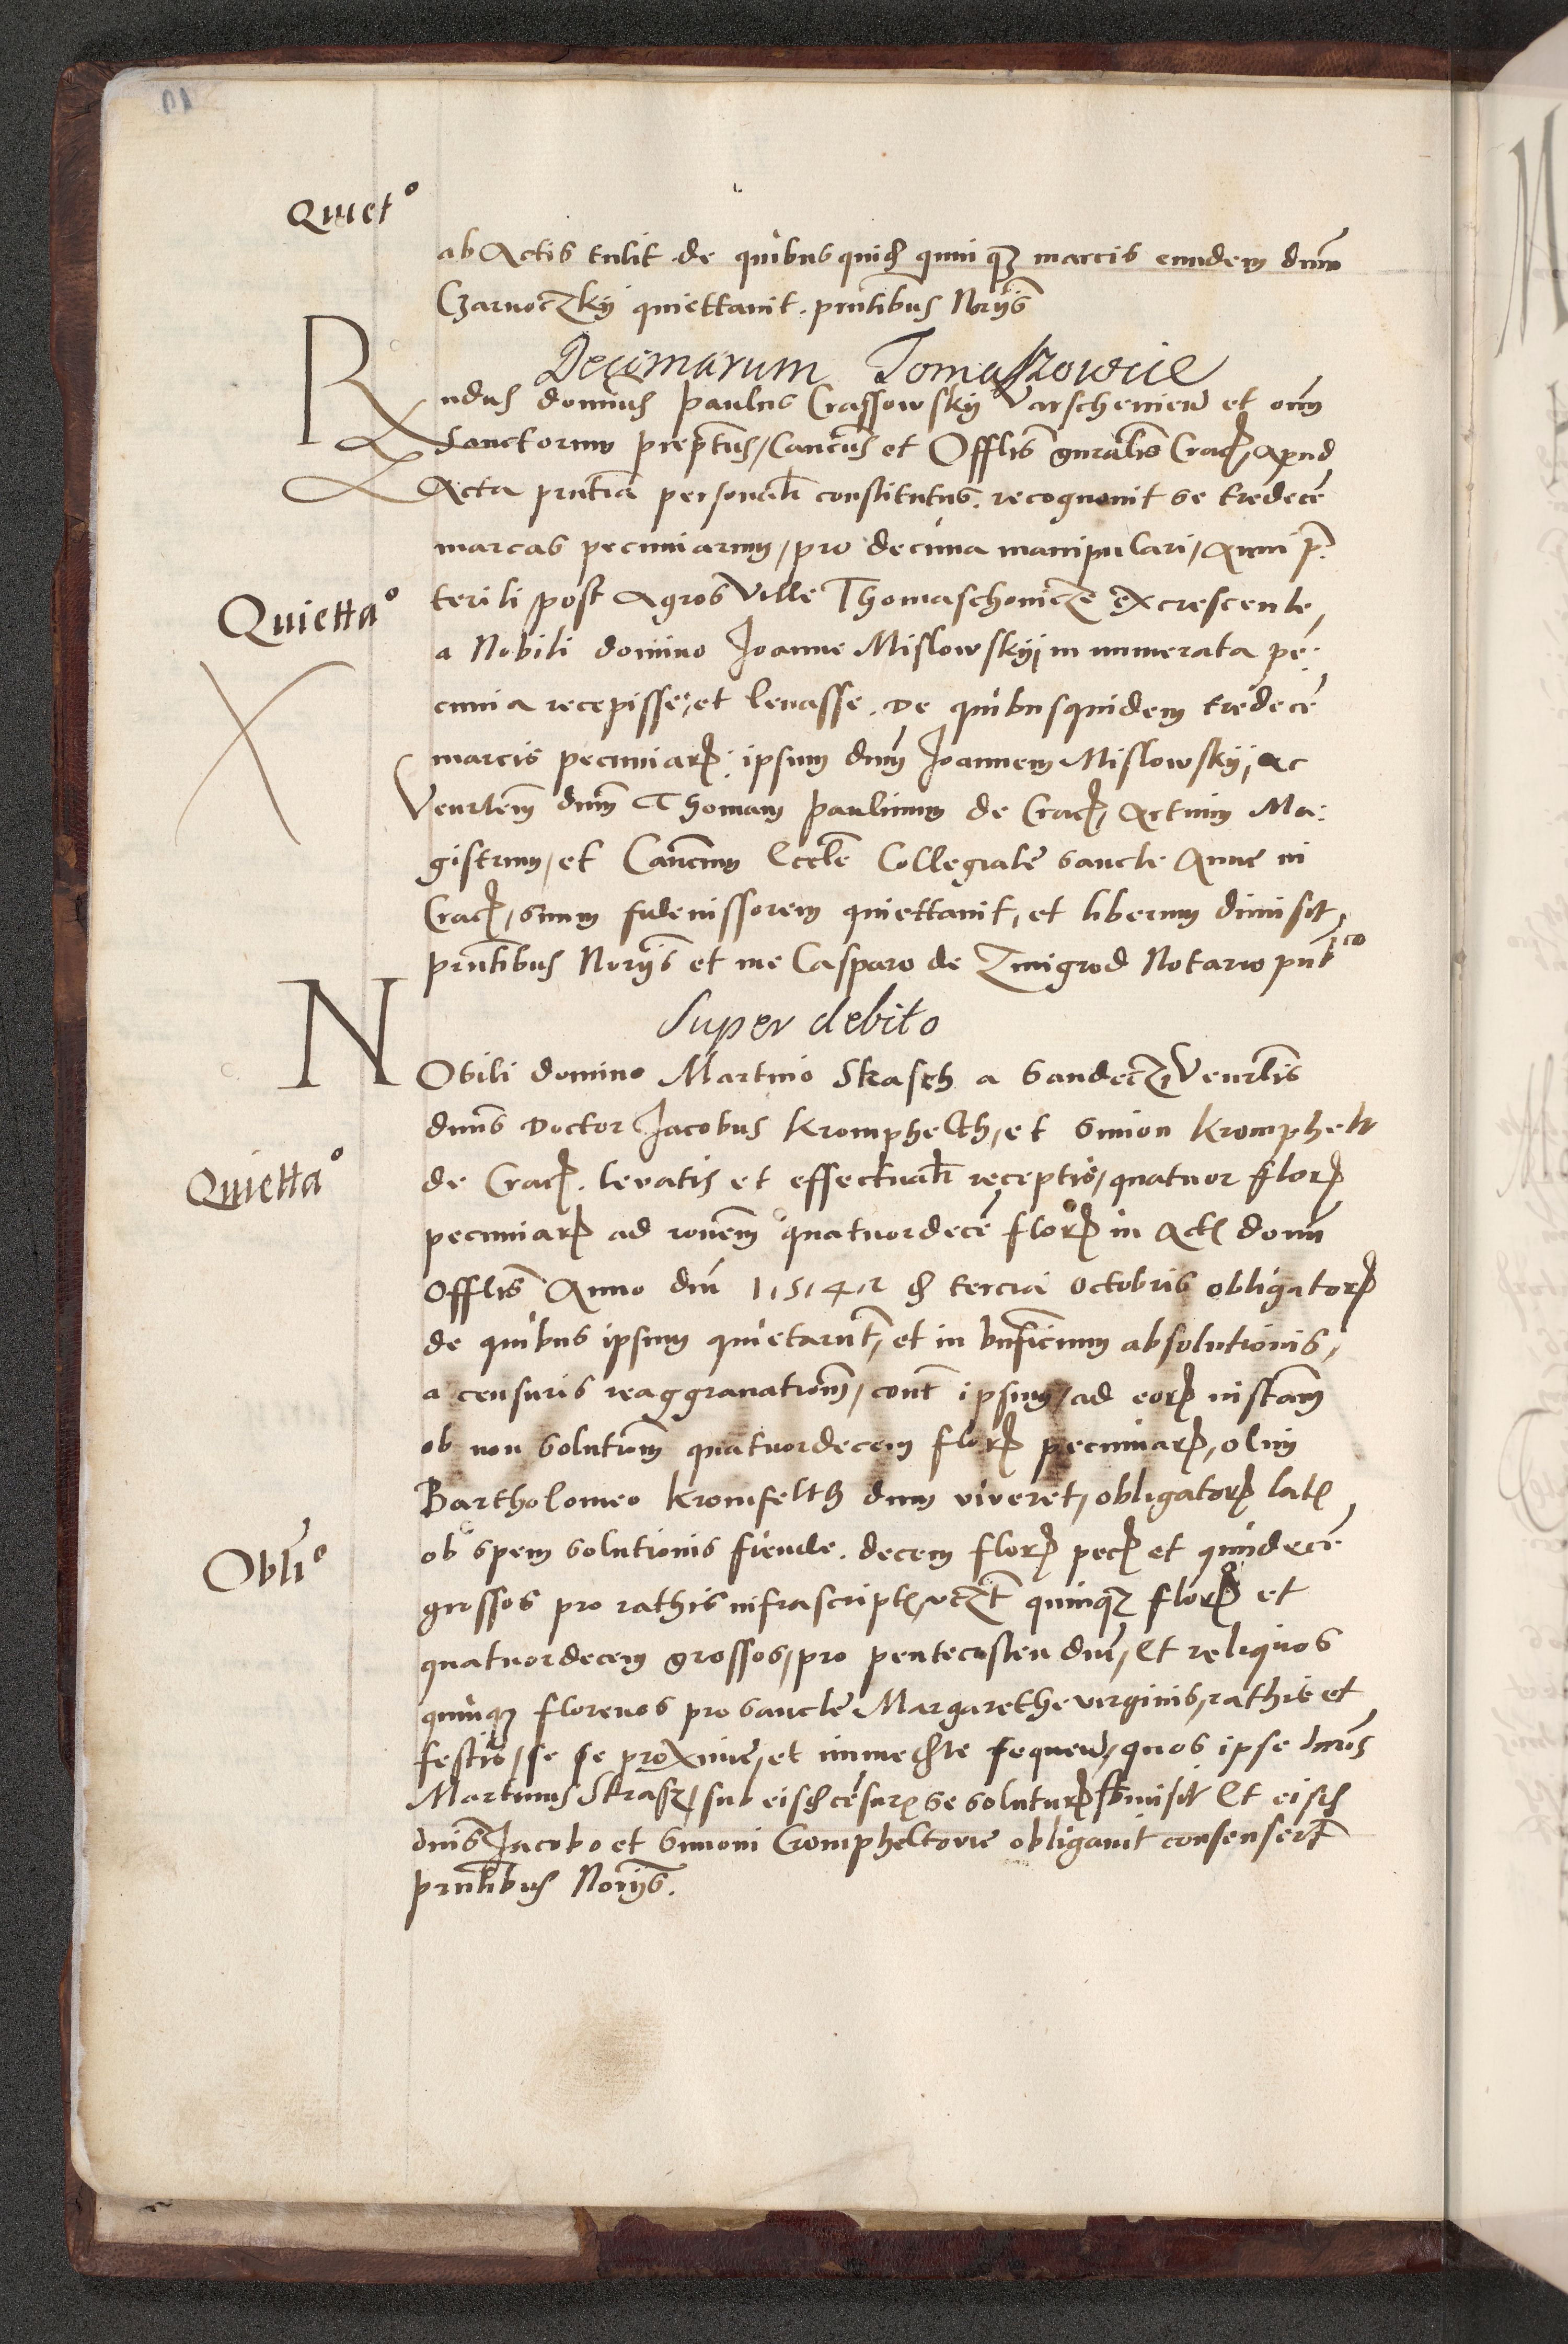 Quiet°
ab Actis tulit de quibus quid quinqz marcis eundem dnm
Czarnoczkÿ quiettauit. pntibus Norÿs
Decimarum Tomaszowcie
Rndus dominus Paulus Crassowskÿ Varschenien et oim
Sanctorum prepťus, Cancus et Offlis gnralis Crac, apud
Acta pntia personalr constitutus. recognouit se tredecē
marcas pecuniarum, pro decima manipulari, Anni p̄:
teriti post Agros Ville Thomaschouicze excrescente,
Quietta°
a Nobili domino Joanne Mislowskÿ in numerata pe:
cunia recepisse, et leuasse. De quibusquidem tredecē
marcis pecuniar: ipsum dnm Joannem Mislowskÿ, ac
Venrlem dnm Thomam Paulinum de Crac, Artium Ma:
gistrum, et Canocum Eccle Collegiate sancte Anne in
Crac, suum fideiussorem quiettauit, et liberum dimisit,
pntibus Norÿs et me Casparo de Zmigrod Notario pub^co
Super debito
NObili domino Martino Skasch a Sandecz, Venrlis
dnus Doctor Jacobus Kromphelth, et Simon Kromphelt
Quietta°
de Crac. leuatis et effectualr receptis, quatuor flor
pecuniar ad ronem quatuordecē flor in Actis domi
Offlis Anno dni 1.5.4.2 d tercia Octobris obligator
de quibus ipsum quietarunt, et in bnficium absolutionis,
a censuris reaggrauationū, cont ipsum, ad eor instam
ob non solutiom quatuordecem flor pecuniar, olim
Bartholomeo Kromfelth dum viueret, obligator latis
Obli°
ob spem solutionis fiende. decem flor pec et quindecē
grossos pro rathis infrascriptis, vczt quinqz flor et
quatuordecem grossos, pro pentecosten dni, Et reliquos
quinqz florenos pro sancte Margarethe virginis, rathis et
festis, se se proxime, et immediate sequen, quos ipse dnus
Martinus Skrasz, sub eisd cēsuris se soluturum submisit Et eisd
dnis Jacobo et Simoni Crompheltowie obligauit consensert
pntibus Norÿs.